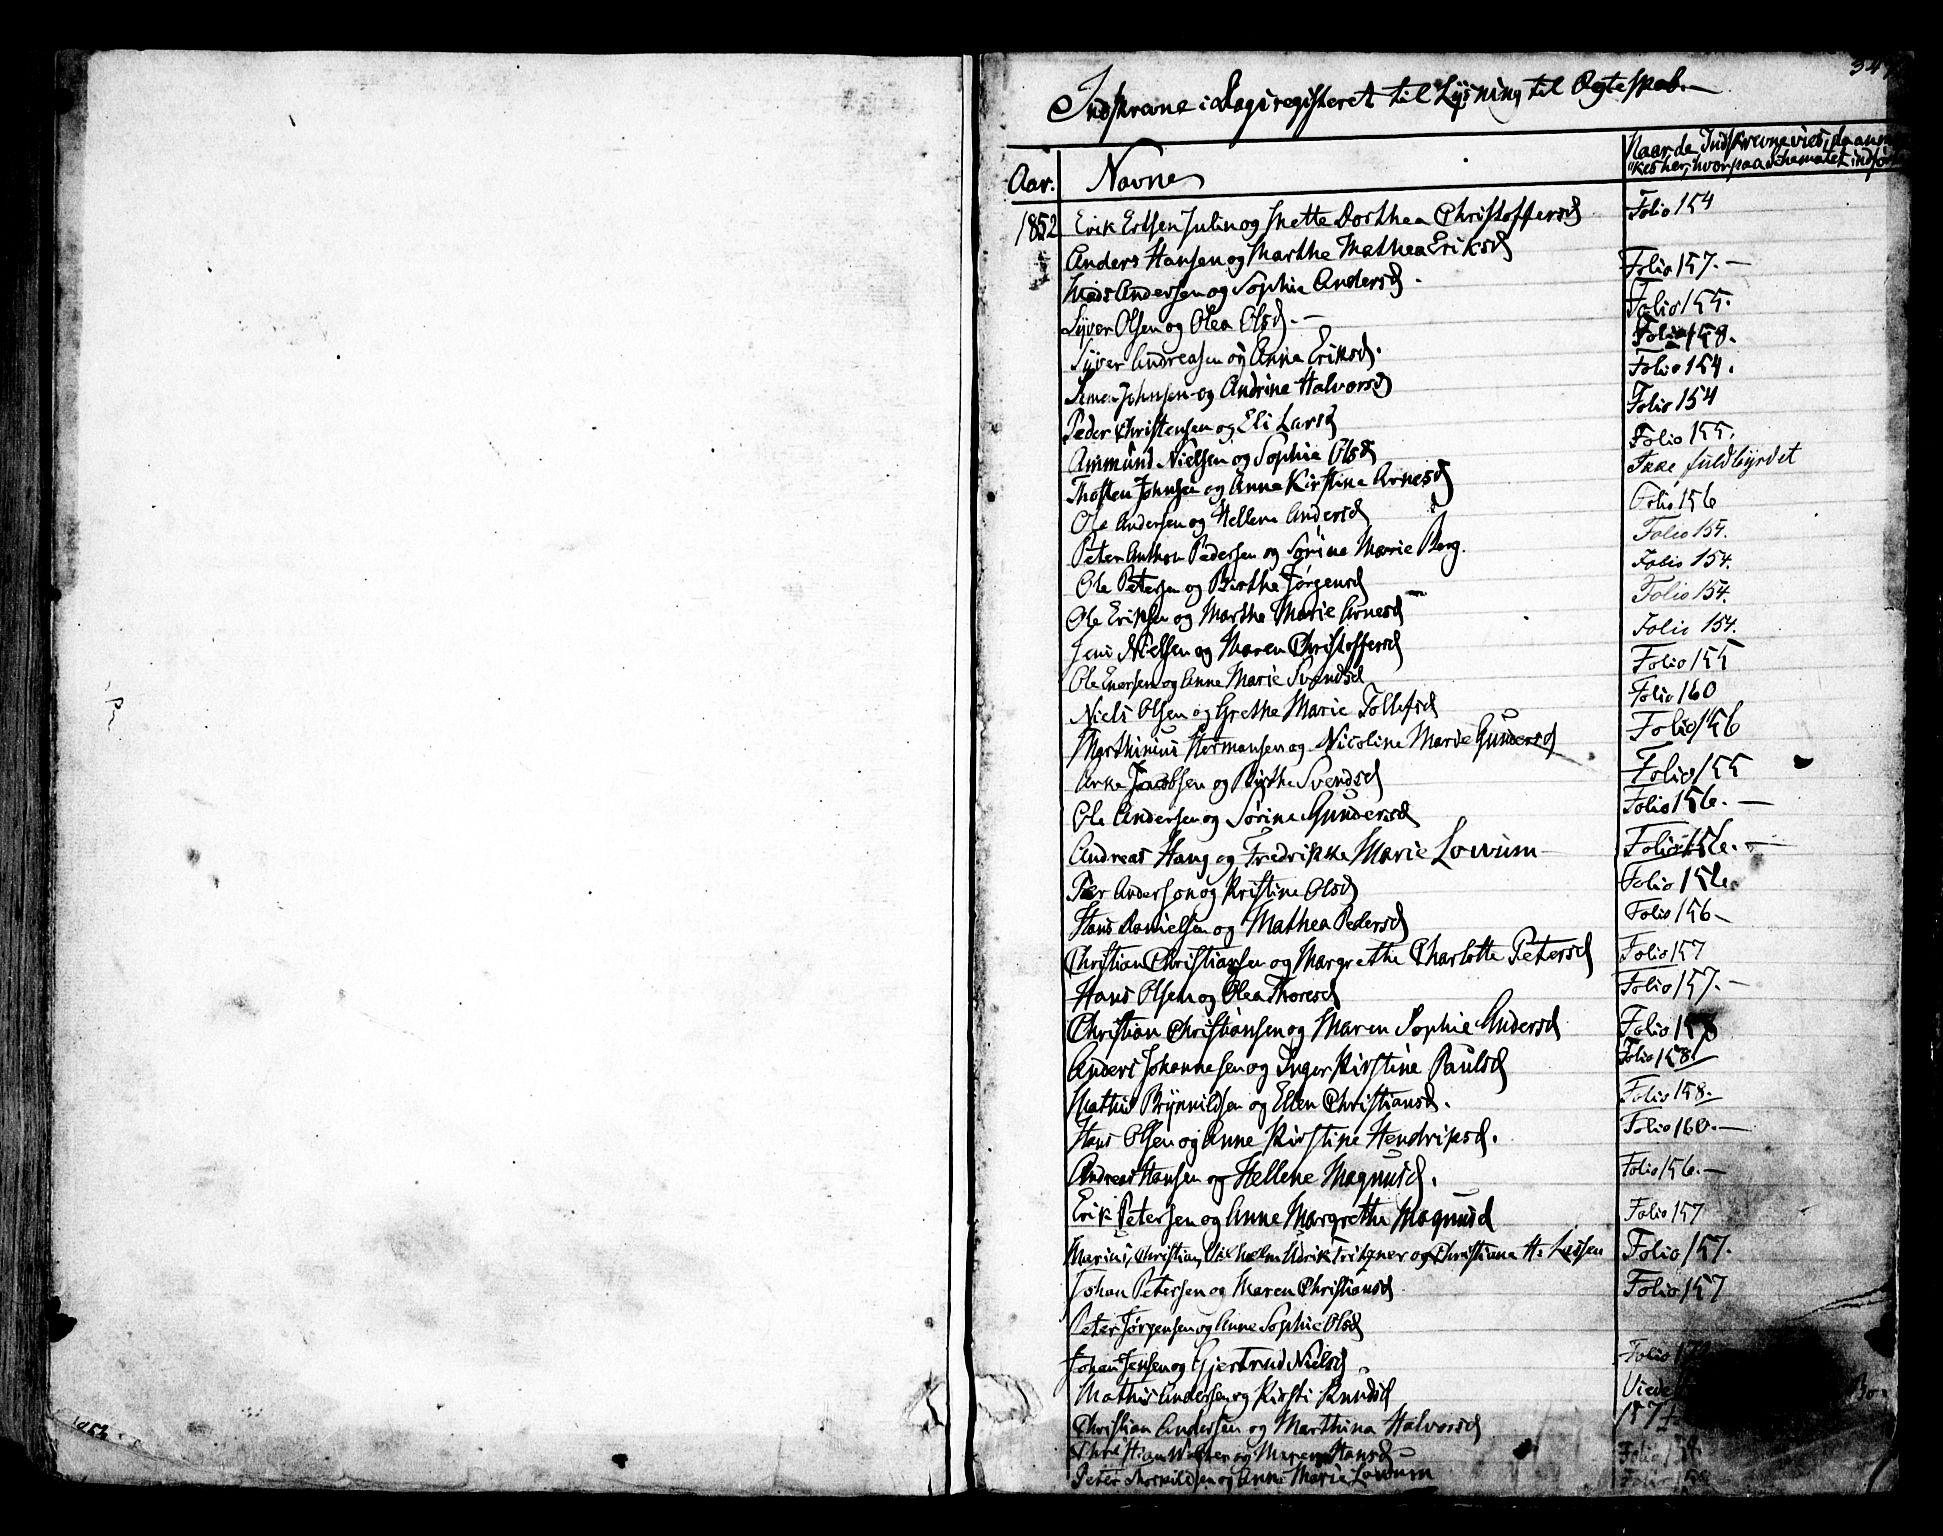 Indskrevne i Dagsregisteret til Lysning til Ægteskab.
Aar. Navne Naar de Indskrevne vies, da
kes her, hvor paa Schematet
1852 Erik Erlsen Julin og Mette Dorthea Christoffersd Folio 154
Anders Hansen og Marthe Mathea Eriksd Folio 157.
Mads Andersen og Sophie Andersd. Folio 155.
Syver Olsen og Olea Olsd. Folio 158.
Syver Andreasen og Anne Eriksd. Folio 154.
Johnsen og Andrine Halvorsd Folio 154
Peder Christensen og Eli Larsd Folio 155.
Ammund Nielsen og Sophie Olsd Ikke fuldbyrdet
Thosten Johnsen og Anne Kirstine Arnesd Folio 156
Ole Andersen og Hellene Andersd Folio 154.
Peter Anthon Pedersen og Sørine Marie Berg. Folio 154.
Ole Petersen og Birthe Jørgensd Folio 154.
Ole Eriksen og Marthe Marie Arnesd Folio 154.
Jens Nielsen og Maren Christoffersd Folio 155
Ole Enersen og Anne Marie Svendsd Folio 160
Niels Olsen og Grethe Marie Tollefsd Folio 156
Marthinius Hermansen og Nicoline Marie Gundersd Folio 155
Jacobsen og Birthe Svendsd Folio 156.
Ole Andersen og Sørine Gundersd Folio 156.
Andreas Haug og Fredrikke Marie Lovum Folio 156.
Per Anderson og Kristine Olsd Folio 156
Hans Danielsen og Mathea Pedersd Folio 157
Christian Christiansen og Margrethe Charlotte Petersd Folio 157.
Hans Olsen og Olea Thoresd
Christian Christiansen og Maren Sophie Andersd Folio 158
Anders Johannesen og Inger Kirstine Paulsd Folio 158
Mathis Brynnildsen og Ellen Christiansd. Folio 158.
Hans Olsen og Anne Kirstine Hendriksd. Folio 160.
Andreas Hansen og Hellene Magnusd. Folio 156.
Erik Petersen og Anne Margrethe Magnusd Folio 157
Marius, Christian, Vilhelm Udrik Fritzner og Christiane H. Lassen Folio 157.
Johan Petersen og Maren Christiansd Folio 157
Peter Jørgensen og Anne Sophie Olsd
Johan Jensen og Gjertrud Nielsd. Folio
Mathis Andersen og Kirsti Knudsd
Christian Andersen og Marthina Halvorsd 157
og Maren Hansd Folio 154
Peter Thorkildsen og Anne Marie Lovum Folio